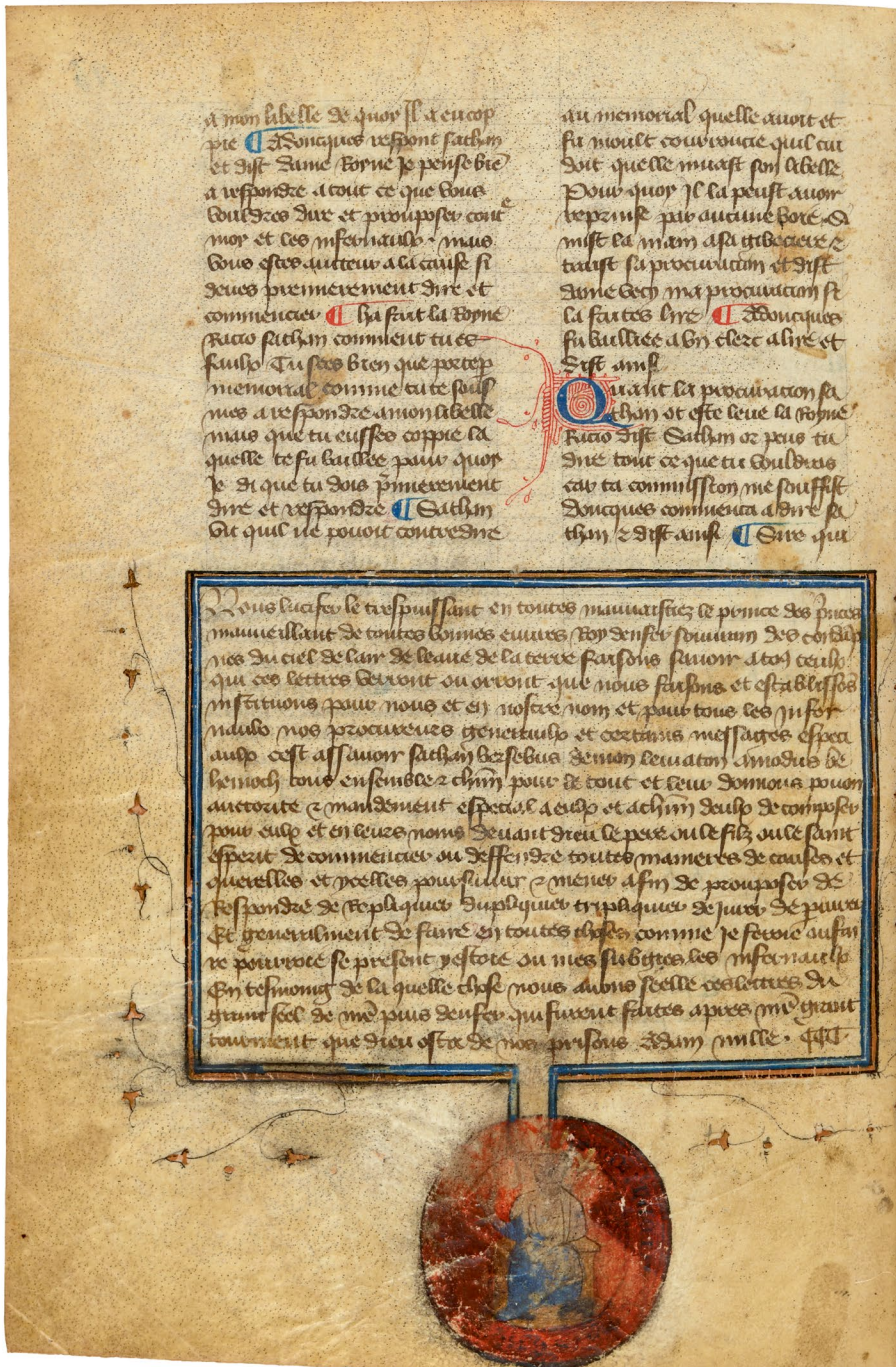 a mon libelle de quoy Il a eu cop
pie ¶ Adoncques respont sathan
et dist dame Royne Je pense biē
a respondre a tout ce que vous
vouldres dire et prouposer contᵉ
moy et les infernaulx. mais
vous estes aucteur a la cause si
deves premierement dire et
commencier ¶ ha fait la Royne
Racio sathan comment tu es
faulx Tu sces bien que porter
memorial comme tu te soub
mes a respondre a mon libelle
mais que tu eusses coppie la
quelle te fu baillee pour quoy
Je di que tu dois p̄mierement
dire et respondre ¶ Sathan
vit quil ne pouoit contredire
au memorial quelle auoit et
fu moult courroucie quil cui
doit quelle muast son libelle
Pour quoy Il la peust auoir
reprinse par aucune voie Si
mist la main a sa gibeciere et
traist sa procuration et dist
dame vecy ma procuration si
la faites lire ¶ Adoncques
fu bailliee a vn clerc a lire et
dist ainsi
Quant la procuration sa
than ot este leue la Royne
Racio dist Sathan or peus tu
dire tout ce que tu vouldras
car ta commission me souffist
doncques commenca a dire sa
than et dist ainsi ¶ Sire qui
Nous lucifer le trespuissant en toutes mauuaistiez le prince des p̄nces
maiueillant de toutes bonnes euures Roy denfer souuerain des condāp
nes du ciel de lair de leaue de la terre faisons sauoir a to9 ceulx
qui ces lettres verront ou orront que nous faisons et establissōs
instituons pour nous et en nostre nom et pour tous les Infer
naulx nos procureurs generaulx et certains messages especi
aulx cest assauoir sathan bersebus demon leuiaton amodus be
hemoch tous ensemble et chūn pour le tout et leur donnons pouoir
auctorite et mandement especial a eulx et a chūn deulx de composer
pour eulx et en leurs noms deuant dieu le pere ou le filz ou le saint
esperit de commencier ou deffendre toutes manieres de causes et
querelles et ycelles poursuiuir et mener a fin de prouposer de
Respondre de Repliquier dupliquier tripliquier de iurer de
Et generalment de faire en toutes choses comme Je feroie ou fai
re pourroie se present y estoie ou mes subgies les infernaulx
En tesmoing de la quelle chose nous auons seelle ces lettres du
grant seel de mē puis denfer qui furent faites apres mē grant
tourment que dieu osta de nos prisons Adam mille. CCC